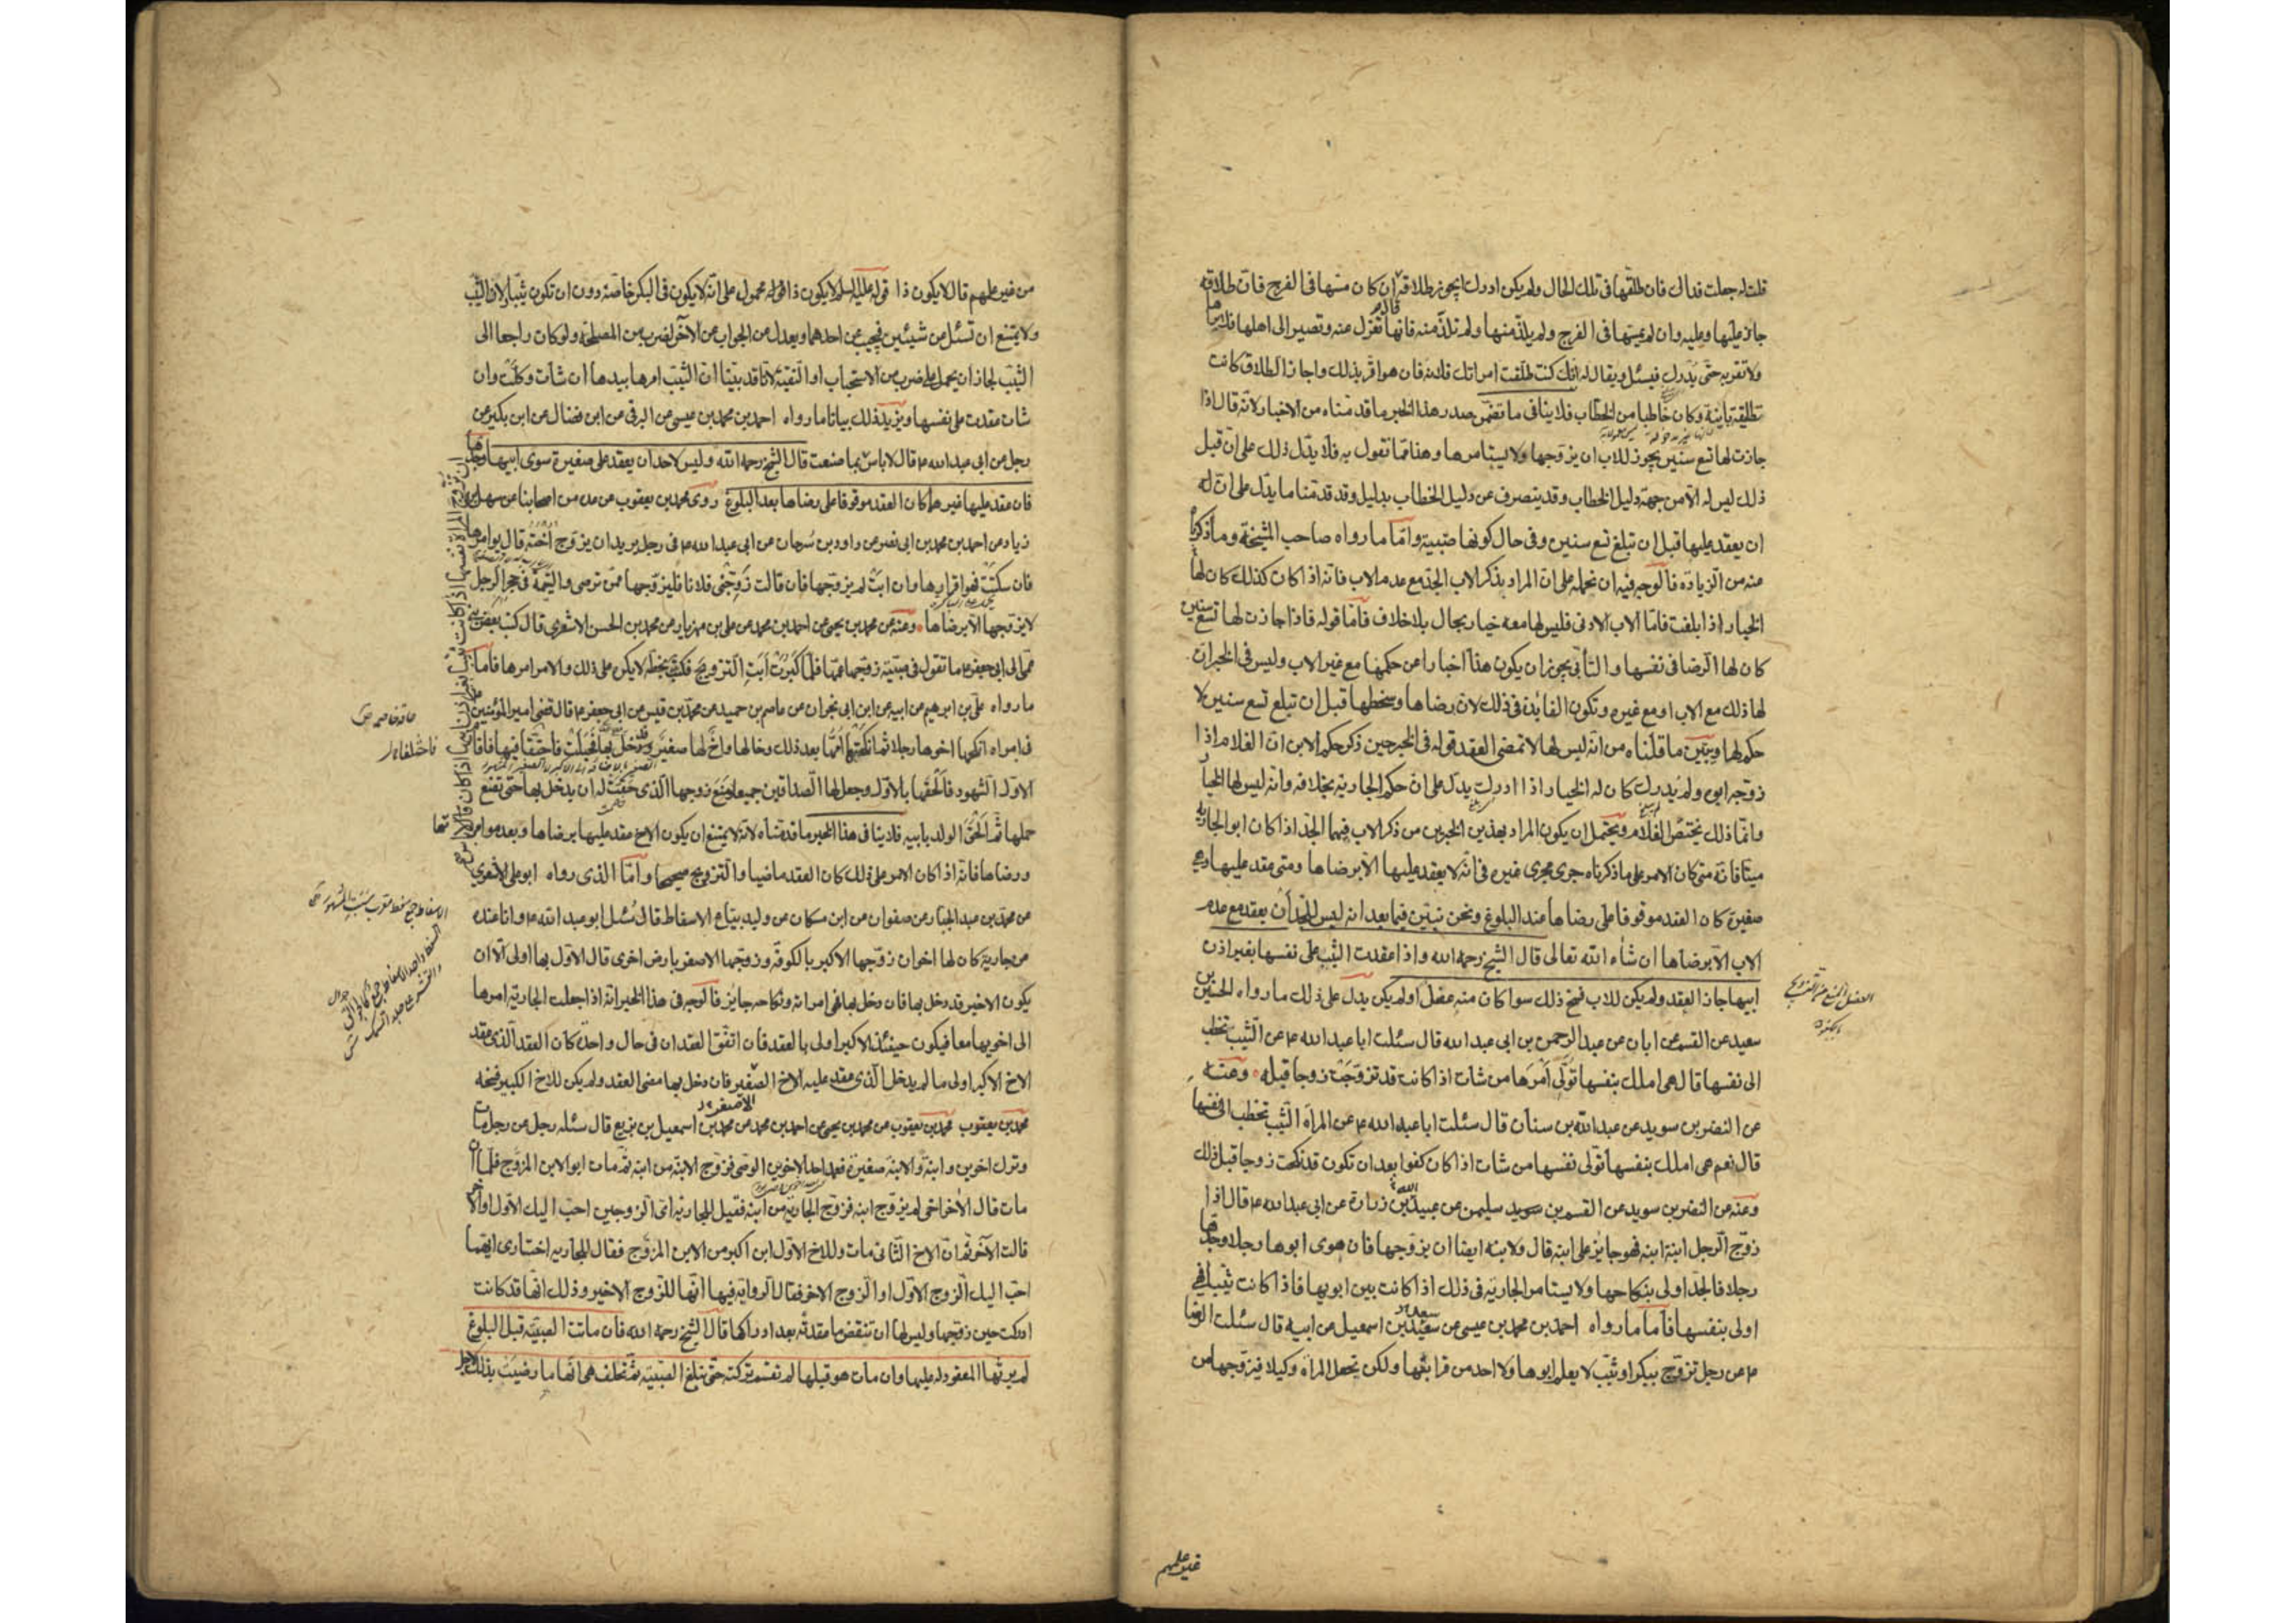 قلت له جعلت فداك فان طلقها فى تلك الحال ولم يكن ادرك ايجوز طلاقه قال ان كان مسها فى الفرج فان طلاقه
جائز عليها وعليه وان لم يمسها فى الفرج ولم يلذ منها ولم تلذ منه فانها تعزل عنه وتصير الى اهلها فلا يراها
ولا تقربه حتى يدرك فيسئل ويقال له انك كنت طلقت امراتك فلانة فان هو اقر بذلك واجاز الطلاق كانت
تطليقة باينة وكان خاطبا من الخطاب فلا ينافى ما تضمن صدر هذا الخبر ما قدمناه من الاخبار لانه قال اذا
جازت لها تسع سنين يجوز للاب ان يزوجها ولا يستامرها وهذا مما تقول به فلا يدل ذلك على ان قبل
ذلك ليس له الا من جهة دليل الخطاب وقد يتصرف عن دليل الخطاب بدليل وقد قدمنا ما يدل على ان له
ان يعقد عليها قبل ان تبلغ تسع سنين وفى حال كونها صبية واما ما رواه صاحب المشيخة وما ذكرنا
منه من الزيادة فالوجه فيه ان نحمله على ان المراد بذكر الاب الجد مع عدم الاب فانه اذا كان كذلك كان لها
الخيار اذا بلغت فاما الاب الادنى فليس لها معه خيار بحال بلا خلاف فاما قوله فاذا جازت لها تسع سنين
كان لها الرضا فى نفسها والتأبى يجوز ان يكون هذا اخبارا عن حكمها مع غير الاب وليس فى الخبر ان
لها ذلك مع الاب او مع غيره وتكون الفايدة فى ذلك لان رضاها وسخطها قبل ان تبلغ تسع سنين لا
حكم لها ويبين ما قلناه من انه ليس لها الا تمضى العقد قوله فى الخبر حين ذكر حكم الابن ان الغلام اذا
زوجه ابوه ولم يدرك كان له الخيار اذا ادرك يدل على ان حكم الجارية بخلافه وانه ليس لها الخيار
وانما ذلك يختص الغلام ويحتمل ان يكون المراد بهذين الخبرين من ذكر الاب فيهما الجد اذا كان ابو الجارية
ميتا فانه متى كان الامر على ما ذكرناه جرى مجرى غيره فى انه لا يعقد عليها الا برضاها ومتى عقد عليها وهى
صغيرة كان العقد موقوفا على رضاها عند البلوغ ونحن نبين فيما بعد انه ليس للجد ان يعقد مع عدم
الاب الا برضاها ان شاء الله تعالى قال الشيخ رحمه الله واذا عقدت الثيب على نفسها بغير اذن
ابيها جاز العقد ولم يكن للاب فسخ ذلك سوا كان منه عضل او لم يكن يدل على ذلك ما رواه الحسين بن
سعيد عن القسم عن ابان عن عبد الرحمن بن ابى عبد الله قال سئلت ابا عبد الله ع عن الثيب تخطب
الى نفسها قال هى املك بنفسها تولى امرها من شات اذا كانت قد تزوجت زوجا قبله وعنه
عن النضر بن سويد عن عبد الله بن سنان قال سئلت ابا عبد الله ع عن المراة الثيب تخطب الى نفسها
قال نعم هى املك بنفسها تولى نفسها من شات اذا كان كفوا بعد ان تكون قد نكحت زوجا قبل ذلك
وعنه عن النضر بن سويد عن القسم بن سويد سليمن عن عبيد الله بن زرارة عن ابى عبد الله ع قال اذا
زوج الرجل ابنة ابنه فهو جايز على ابنه قال ولابنه ايضا ان يزوجها فان هوى ابوها رجلا وجدها
رجلا فالجد اولى بنكاحها ولا يستامر الجارية فى ذلك اذا كانت بين ابويها فاذا كانت ثيبا فهى
اولى بنفسها فاما ما رواه احمد بن محمد بن عيسى عن سعيد سعد بن اسمعيل عن ابيه قال سئلت الرضا
ع عن رجل تزوج ببكر او ثيب لا يعلم ابوها ولا احد من قرابتها ولكن تجعل المراة وكيلا فيزوجها من
العضل المنع من التزويج
غير علمهم
من غير علمهم قال لا يكون ذا قوله عليه السلم لا يكون ذا قوله محمول على انه لا يكون فى البكر خاصة دون ان تكون ثيبا لان الثيب
ولا يمتنع ان تسئل عن شيئين فيجيب عن احدهما ويعدل عن الجواب عن الآخر لضرب من المصلحة ولو كان راجعا الى
الثيب لجاز ان يحمل على ضرب من الاستحباب او التقية لانا قد بينا ان الثيب امرها بيدها ان شات وكلت وان
شات عقدت على نفسها ويزيد ذلك بيانا ما رواه احمد بن محمد بن عيسى عن البرقى عن ابن فضال عن ابن بكير عن
رجل عن ابى عبد الله ع قال لا باس بما صنعت قال الشيخ رحمه الله وليس لاحد ان يعقد على صغيرة سوى ابيها وجدها
فان عقد عليها غيرهما كان العقد موقوفا على رضاها بعد البلوغ روى محمد بن يعقوب عن عدة من اصحابنا عن سهل بن
زياد عن احمد بن محمد بن ابى نصر عن داود بن سرحان عن ابى عبد الله ع فى رجل يريد ان يزوج اخته قال يوامرها
فان سكتت فهو اقرارها وان ابت لم يزوجها فان قالت زوجنى فلانا فليزوجها ممن ترضى واليتيمة فى حجر الرجل
لا يزوجها الا برضاها وعنه عن محمد بن يحيى عن احمد بن محمد عن على بن مهزيار عن محمد بن الحسن الاشعرى قال كتب بعض بنى
عمى الى ابى جعفر ع ما تقول فى صبية زوجها عمها فلما كبرت ابت التزويج فكتب بخطه لا يكره على ذلك والامر امرها فاما
ما رواه على بن ابرهيم عن ابيه عن ابن ابى نجران عن عاصم بن حميد عن محمد بن قيس عن ابى جعفر ع قال قضى امير المؤمنين
فى امراه انكحها اخوها رجلا ثم انكحتها امها بعد ذلك وخالها واخ لها صغير فدخل بها فحبلت فاختقا فيها فاقام
الاول الشهود فالحقها بالاول وجعل لها الصداقين جميعا ومنع زوجها الذى حقت له ان يدخل بها حتى تضع
حملها ثم الحق الولد بابيه فلا ينافى هذا الخبر ما قدمناه لانه لا يمتنع ان يكون الاخ عقد عليها برضاها وبعد موامرتها
ورضاها فانه اذا كان الامر على ذلك كان العقد ماضيا والتزويج صحيحا واما الذى رواه ابو على الاشعرى
عن محمد بن عبد الجبار عن صفوان عن ابن مسكان عن وليد بياع الاسفاط قال سئل ابو عبد الله ع وانا عنده
عن جارية كان لها اخوان زوجها الاكبر بالكوفة وزوجها الاصغر بارض اخرى قال الاول بها اولى الا ان
يكون الاخير قد دخل بها فان دخل بها فهى امراته ونكاحه جايز فالوجه فى هذا الخبر انه اذا جعلت الجارية امرها
الى اخويها معا فيكون حينئذ الاكبر اولى بالعقد فان اتفق العقدان فى حال واحد كان العقد الذى عقد
الاخ الاكبر اولى ما لم يدخل الذى عقد عليه الاخ الصغير فان دخل بها مضى العقد ولم يكن للاخ الكبير فسخه
محمد بن يعقوب محمد بن يعقوب عن محمد بن يحيى عن احمد بن محمد عن محمد بن اسمعيل بن بزيع قال سئله رجل عن رجل مات
وترك اخوين وابنة والابنة صغيرة فعمد احد الاخوين الوصى فزوج الابنة من ابنه ثم مات ابو الابن المزوج فلما ان
مات قال الآخر اخى لم يزوج ابنه فزوج الجارية من ابنه فقيل للجارية اى الزوجين احب اليك الاول او الآخر
قالت الآخر ثم ان الاخ الثانى مات وللاخ الاول ابن اكبر من الابن المزوج فقال للجارية اختارى ايهما
احب اليك الزوج الاول او الزوج الاخر فقال الرواية فيها انها للزوج الاخير وذلك انها قد كانت
ادركت حين زوجها وليس لها ان تنقض ما عقدته بعد ادراكها قال الشيخ رحمه الله فان ماتت الصبية قبل البلوغ
لم يرثها المعقود له عليها وان مات هو قبلها لم تقسم تركته حتى تبلغ الصبية ثم تحلف هى انها ما رضيت بذلك لاجل
ان تزوج المراة نفسها اذا كانت ثيبا بغير اذن ابيها اذا كان لا باس
فاختلفا